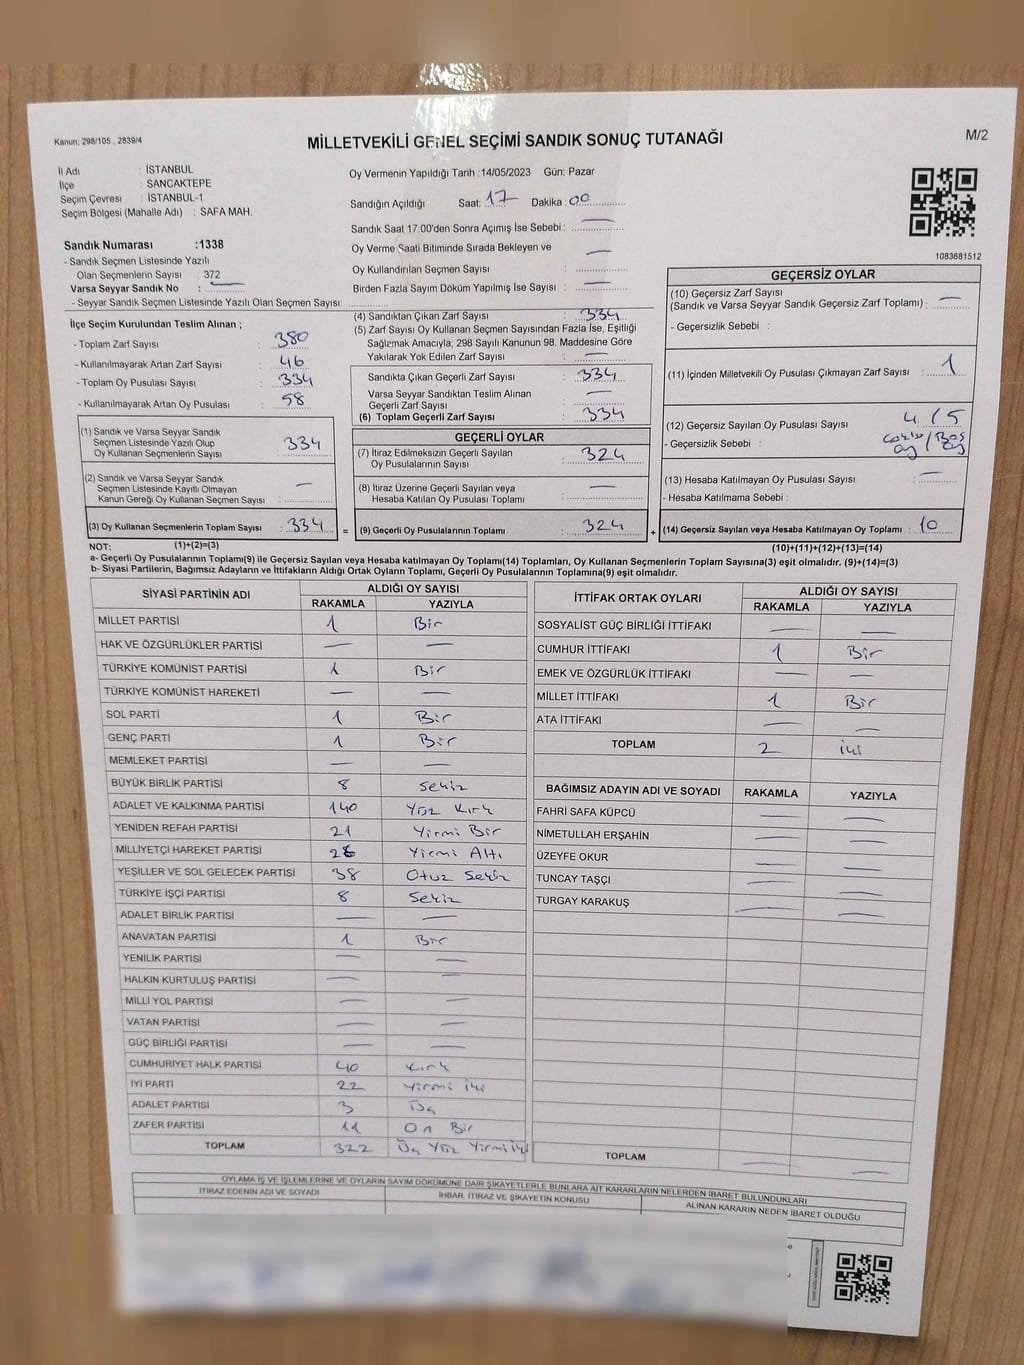 Kanun: 298/105 , 2839/4
MİLLETVEKİLİ GENEL SEÇİMİ SANDIK SONUÇ TUTANAĞI
M/2
İl Adı : İSTANBUL
İlçe : SANCAKTEPE
Seçim Çevresi : İSTANBUL-1
Seçim Bölgesi (Mahalle Adı) : SAFA MAH.
Oy Vermenin Yapıldığı Tarih :14/05/2023 Gün: Pazar
Sandığın Açıldığı Saat: 17 Dakika : 00
Sandık Saat 17.00'den Sonra Açımış İse Sebebi : —
Oy Verme Saati Bitiminde Sırada Bekleyen ve
Oy Kullandırılan Seçmen Sayısı : —
Birden Fazla Sayım Döküm Yapılmış İse Sayısı : —
1083681512
Sandık Numarası :1338
- Sandık Seçmen Listesinde Yazılı
Olan Seçmenlerin Sayısı : 372
Varsa Seyyar Sandık No : —
- Seyyar Sandık Seçmen Listesinde Yazılı Olan Seçmen Sayısı:
İlçe Seçim Kurulundan Teslim Alınan ;
- Toplam Zarf Sayısı : 380
- Kullanılmayarak Artan Zarf Sayısı : 46
- Toplam Oy Pusulası Sayısı : 334
- Kullanılmayarak Artan Oy Pusulası : 58
(1) Sandık ve Varsa Seyyar Sandık
Seçmen Listesinde Yazılı Olup
Oy Kullanan Seçmenlerin Sayısı : 334
(2) Sandık ve Varsa Seyyar Sandık
Seçmen Listesinde Kayıtlı Olmayan
Kanun Gereği Oy Kullanan Seçmen Sayısı : —
(3) Oy Kullanan Seçmenlerin Toplam Sayısı : 334
(1)+(2)=(3)
(4) Sandıktan Çıkan Zarf Sayısı : 334
(5) Zarf Sayısı Oy Kullanan Seçmen Sayısından Fazla İse, Eşitliği
Sağlemak Amacıyla; 298 Sayılı Kanunun 98. Maddesine Göre
Yakılarak Yok Edilen Zarf Sayısı : —
Sandıkta Çıkan Geçerli Zarf Sayısı : 334
Varsa Seyyar Sandıktan Teslim Alınan
Geçerli Zarf Sayısı : —
(6) Toplam Geçerli Zarf Sayısı : 334
GEÇERLİ OYLAR
(7) İtiraz Edilmeksizin Geçerli Sayılan
Oy Pusulalarının Sayısı : 324
(8) İtiraz Üzerine Geçerli Sayılan veya
Hesaba Katılan Oy Pusulası Toplamı : —
= (9) Geçerli Oy Pusulalarının Toplamı : 324 +
GEÇERSİZ OYLAR
(10) Geçersiz Zarf Sayısı
(Sandık ve Varsa Seyyar Sandık Geçersiz Zarf Toplamı) : —
- Geçersizlik Sebebi :
(11) İçinden Milletvekili Oy Pusulası Çıkmayan Zarf Sayısı : 1
(12) Geçersiz Sayılan Oy Pusulası Sayısı : 4 / 5
- Geçersizlik Sebebi : oy / Boş oy
(13) Hesaba Katılmayan Oy Pusulası Sayısı : —
- Hesaba Katılmama Sebebi :
(14) Geçersiz Sayılan veya Hesaba Katılmayan Oy Toplamı : 10
(10)+(11)+(12)+(13)=(14)
NOT:
a- Geçerli Oy Pusulalarının Toplamı(9) ile Geçersiz Sayılan veya Hesaba katılmayan Oy Toplamı(14) Toplamları, Oy Kullanan Seçmenlerin Toplam Sayısına(3) eşit olmalıdır. (9)+(14)=(3)
b- Siyasi Partilerin, Bağımsız Adayların ve İttifakların Aldığı Ortak Oyların Toplamı, Geçerli Oy Pusulalarının Toplamına(9) eşit olmalıdır.
SİYASİ PARTİNİN ADI ALDIĞI OY SAYISI
RAKAMLA YAZIYLA
MİLLET PARTİSİ 1 Bir
HAK VE ÖZGÜRLÜKLER PARTİSİ — —
TÜRKİYE KOMÜNİST PARTİSİ 1 Bir
TÜRKİYE KOMÜNİST HAREKETİ — —
SOL PARTİ 1 Bir
GENÇ PARTİ 1 Bir
MEMLEKET PARTİSİ — —
BÜYÜK BİRLİK PARTİSİ 8 Sekiz
ADALET VE KALKINMA PARTİSİ 140 Yüz Kırk
YENİDEN REFAH PARTİSİ 21 Yirmi Bir
MİLLİYETÇİ HAREKET PARTİSİ 26 Yirmi Altı
YEŞİLLER VE SOL GELECEK PARTİSİ 38 Otuz Sekiz
TÜRKİYE İŞÇİ PARTİSİ 8 Sekiz
ADALET BİRLİK PARTİSİ — —
ANAVATAN PARTİSİ 1 Bir
YENİLİK PARTİSİ — —
HALKIN KURTULUŞ PARTİSİ — —
MİLLİ YOL PARTİSİ — —
VATAN PARTİSİ — —
GÜÇ BİRLİĞİ PARTİSİ — —
CUMHURİYET HALK PARTİSİ 40 Kırk
İYİ PARTİ 22 Yirmi iki
ADALET PARTİSİ 3 Üç
ZAFER PARTİSİ 11 On Bir
TOPLAM 322 Üç Yüz Yirmi iki
İTTİFAK ORTAK OYLARI ALDIĞI OY SAYISI
RAKAMLA YAZIYLA
SOSYALİST GÜÇ BİRLİĞİ İTTİFAKI — —
CUMHUR İTTİFAKI 1 Bir
EMEK VE ÖZGÜRLÜK İTTİFAKI — —
MİLLET İTTİFAKI 1 Bir
ATA İTTİFAKI — —
TOPLAM 2 iki
BAĞIMSIZ ADAYIN ADI VE SOYADI RAKAMLA YAZIYLA
FAHRİ SAFA KÜPCÜ — —
NİMETULLAH ERŞAHİN — —
ÜZEYFE OKUR — —
TUNCAY TAŞÇI — —
TURGAY KARAKUŞ — —
TOPLAM — —
OYLAMA İŞ VE İŞLEMLERİNE VE OYLARIN SAYIM DÖKÜMÜNE DAİR ŞİKAYETLERLE BUNLARA AİT KARARLARIN NELERDEN İBARET BULUNDUKLARI
İTİRAZ EDENİN ADI VE SOYADI İHBAR, İTİRAZ VE ŞİKAYETİN KONUSU ALINAN KARARIN NEDEN İBARET OLDUĞU